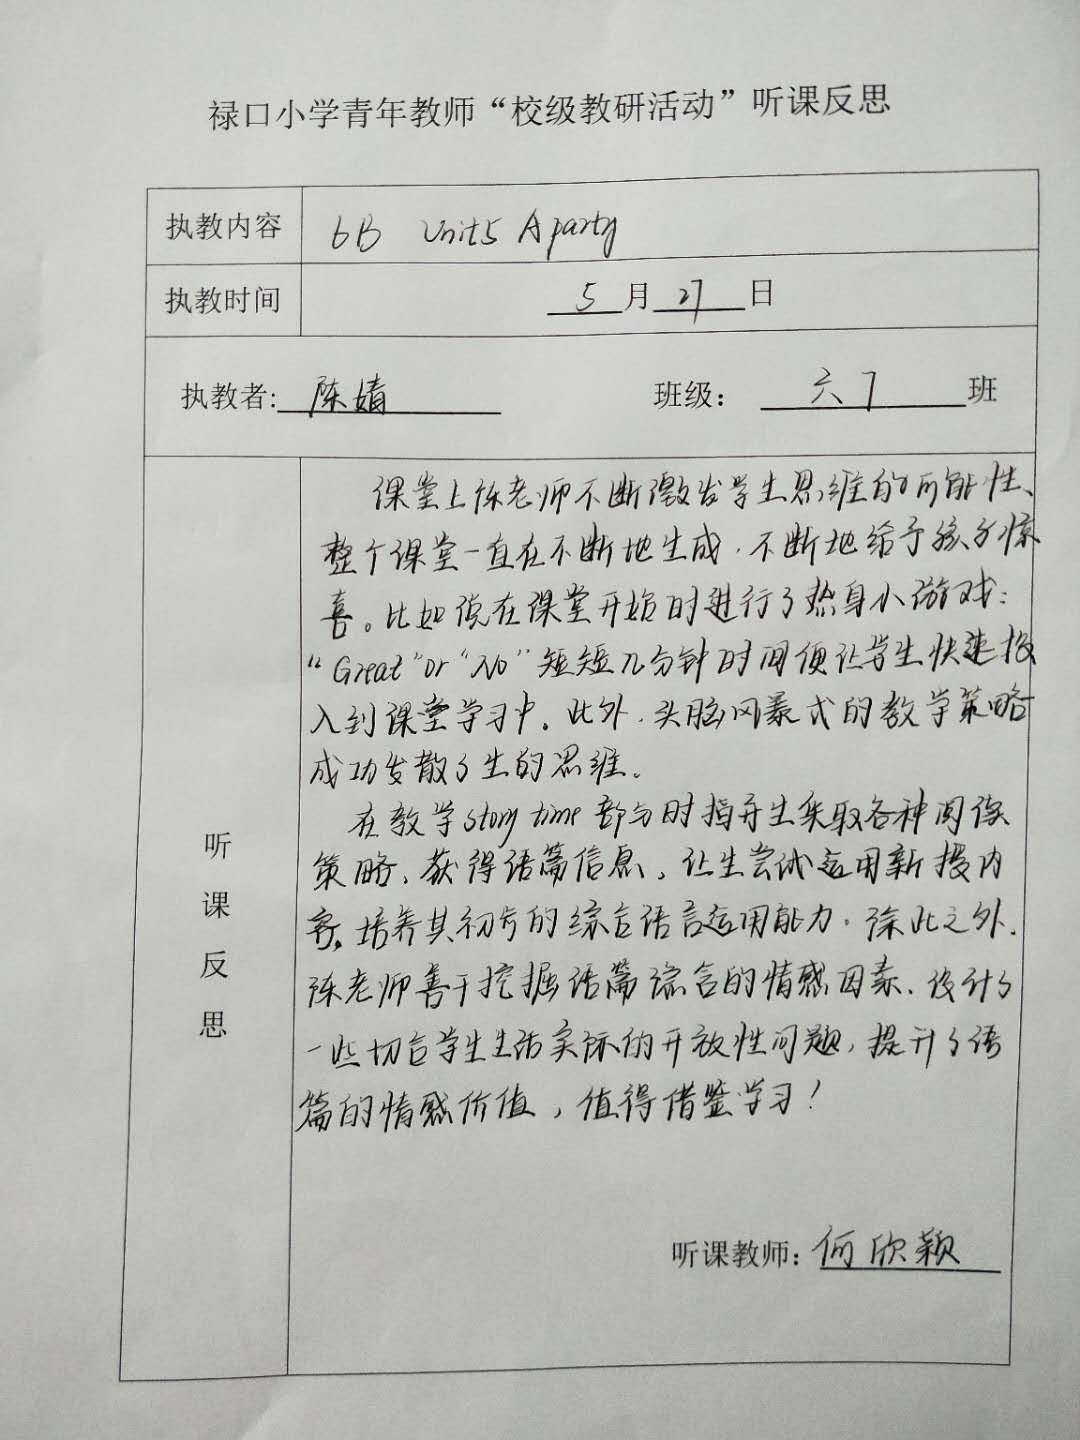 禄口小学青年教师“校级教研活动”听课反思
执教内容 6B Unit5 A party
执教时间 5月27日
执教者: 陈婧 班级: 六7班
课堂上陈老师不断激发学生思维的可能性、
整个课堂一直在不断地生成，不断地给予孩子惊
喜。比如说在课堂开始时进行了热身小游戏：
“Great”or“No”短短几分钟时间便让学生快速投
入到课堂学习中。此外，头脑风暴式的教学策略
成功发散了生的思维。
在教学story time部分时指导生采取各种阅读
策略、获得语篇信息，让生尝试运用新授内
容，培养其初步的综合语言运用能力，除此之外，
陈老师善于挖掘语篇综合的情感因素、设计了
一些切合学生生活实际的开放性问题，提升了语
篇的情感价值，值得借鉴学习！
听课反思
听课教师: 何欣颖